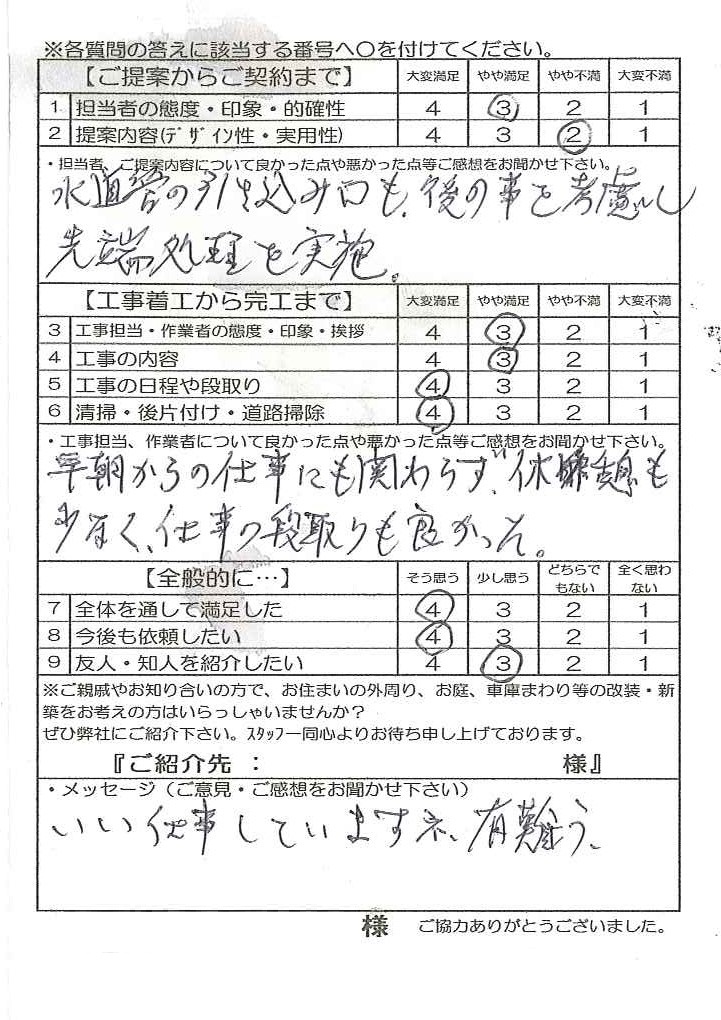 ※各質問の答えに該当する番号へ〇を付けてください。
【ご提案からご契約まで】 大変満足 やや満足 やや不満 大変不満
1 担当者の態度・印象・的確性 4 3 2 1
2 提案内容(ﾃﾞｻﾞｲﾝ性・実用性) 4 3 2 1
・担当者、ご提案内容について良かった点や悪かった点等ご感想をお聞かせ下さい。
水道管の引き込み口も、後の事を考慮し
先端処理を実施。
【工事着工から完工まで】 大変満足 やや満足 やや不満 大変不満
3 工事担当・作業者の態度・印象・挨拶 4 3 2 1
4 工事の内容 4 3 2 1
5 工事の日程や段取り 4 3 2 1
6 清掃・後片付け・道路掃除 4 3 2 1
・工事担当、作業者について良かった点や悪かった点等ご感想をお聞かせ下さい。
早朝からの仕事にも関わらず、休憩も
少なく、仕事の段取りも良かった。
【全般的に…】 そう思う 少し思う どちらでもない 全く思わない
7 全体を通して満足した 4 3 2 1
8 今後も依頼したい 4 3 2 1
9 友人・知人を紹介したい 4 3 2 1
※ご親戚やお知り合いの方で、お住まいの外周り、お庭、車庫まわり等の改装・新
築をお考えの方はいらっしゃいませんか？
ぜひ弊社にご紹介下さい。ｽﾀｯﾌ一同心よりお待ち申し上げております。
『ご紹介先： 様』
・メッセージ（ご意見・ご感想をお聞かせ下さい）
いい仕事していますネ、有難う、
様 ご協力ありがとうございました。